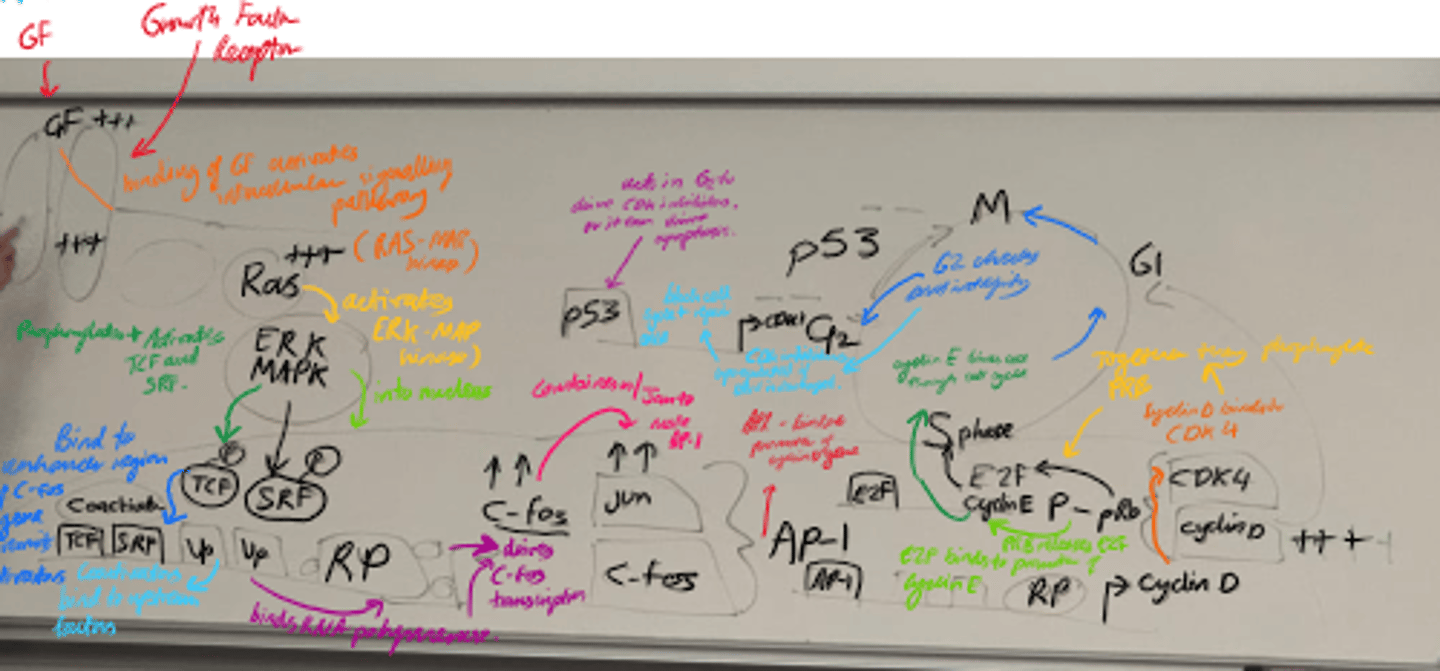 GF
Growth Factor
Receptor
GF +++
binding of GF activates
intracellular signalling
pathway
(RAS-MAP
kinase)
+++
+++
Ras
activates
ERK-MAP
kinase)
Phosphorylates + Activates
TCF and
SRF.
ERK
MAPK
into nucleus
P
TCF
P
SRF
Bind to
enhancer region
of C-fos
gene
Coactivate
TCF
SRF
Up
Up
RP
Coactivators
bind to upstream
factors
binds RNA polymerase.
C-fos
drives
C-fos
transcription
Combines w/ Jun to
make
AP-1
Jun
C-fos
acts in G2 to
drive CDK inhibitors,
or it can drive
apoptosis.
p53
p53
CDK1
G2
M
G1
G2 checks
AP-1
AP-1
E2F
cyclin E drives cell
through cell cycle
S phase
E2F
cyclin E P - pRb
pRB releases E2F
E2F binds to promoter of
cyclin E
RP
Together they phosphorylate
PRB
Cyclin D binds to
CDK4
CDK4
cyclin D
+++
Cyclin D